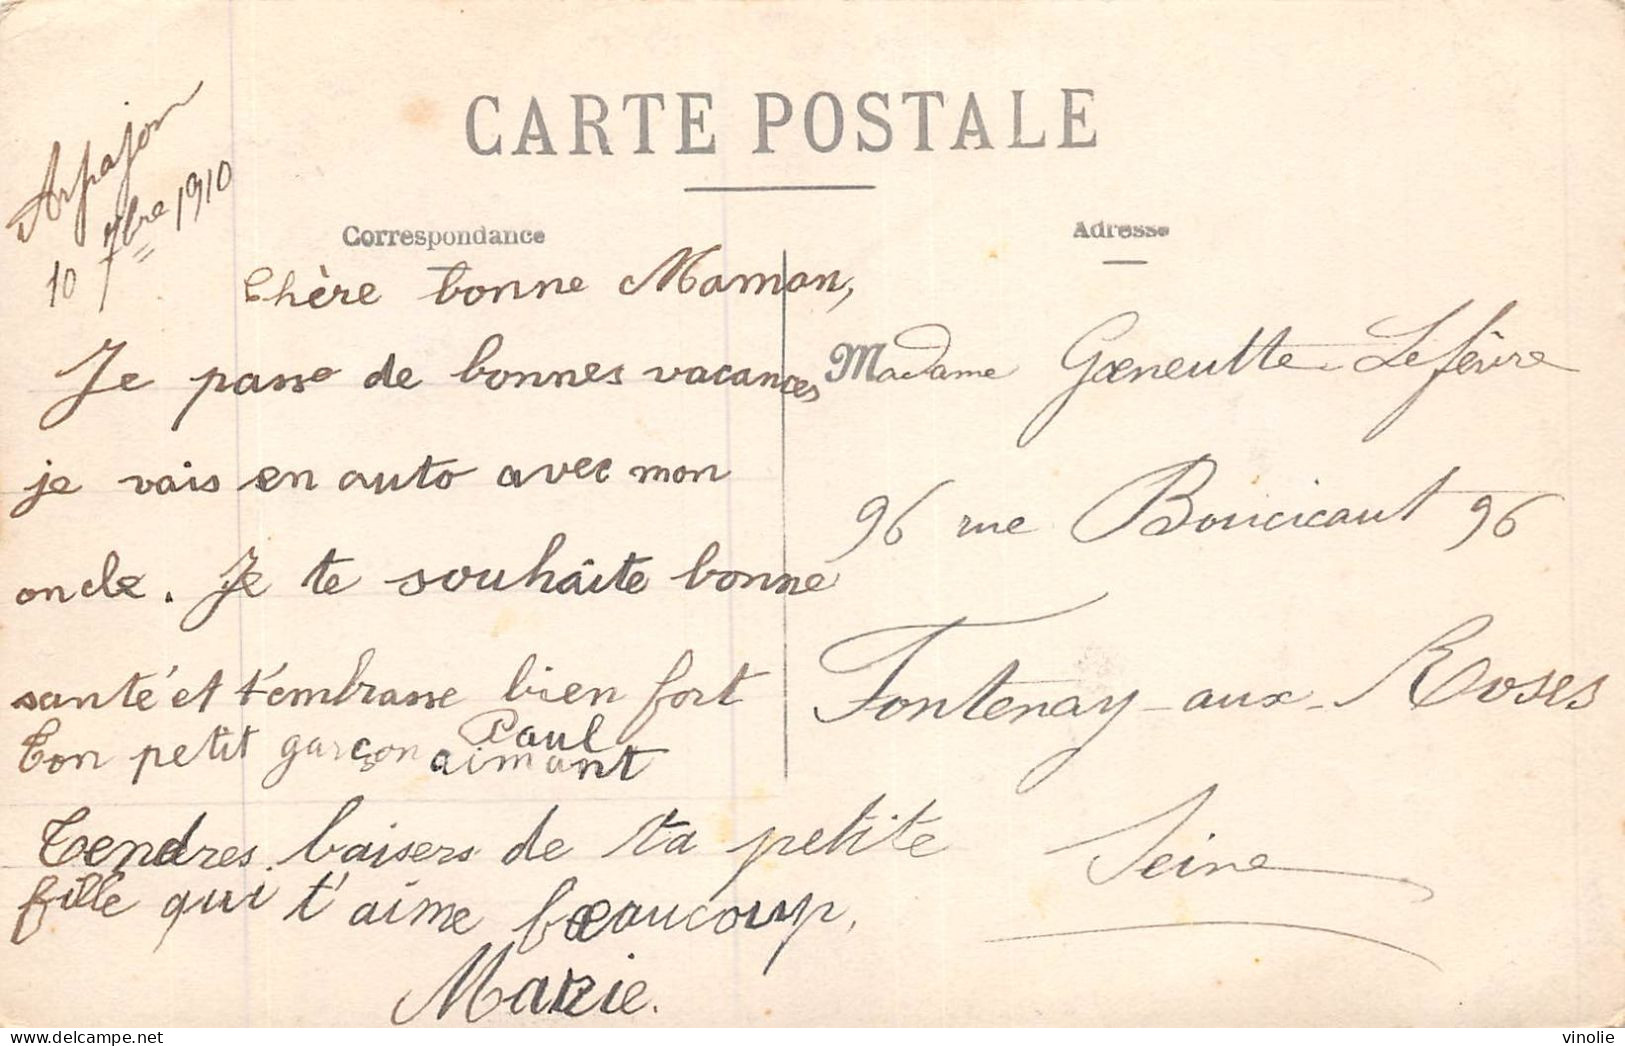 CARTE POSTALE
Arpajon
10 7bre 1910
Correspondance
Chère bonne Maman,
Je passe de bonnes vacances
je vais en auto avec mon
oncle. Je te souhaite bonne
santé et t'embrasse bien fort
Ton petit garçon aimant
Paul
Tendres baisers de ta petite
fille qui t'aime beaucoup,
Marie.
Adresse
Madame Gœneutte-Lefèvre
96 rue Boucicaut 96
Fontenay-aux-Roses
Seine
vinolie